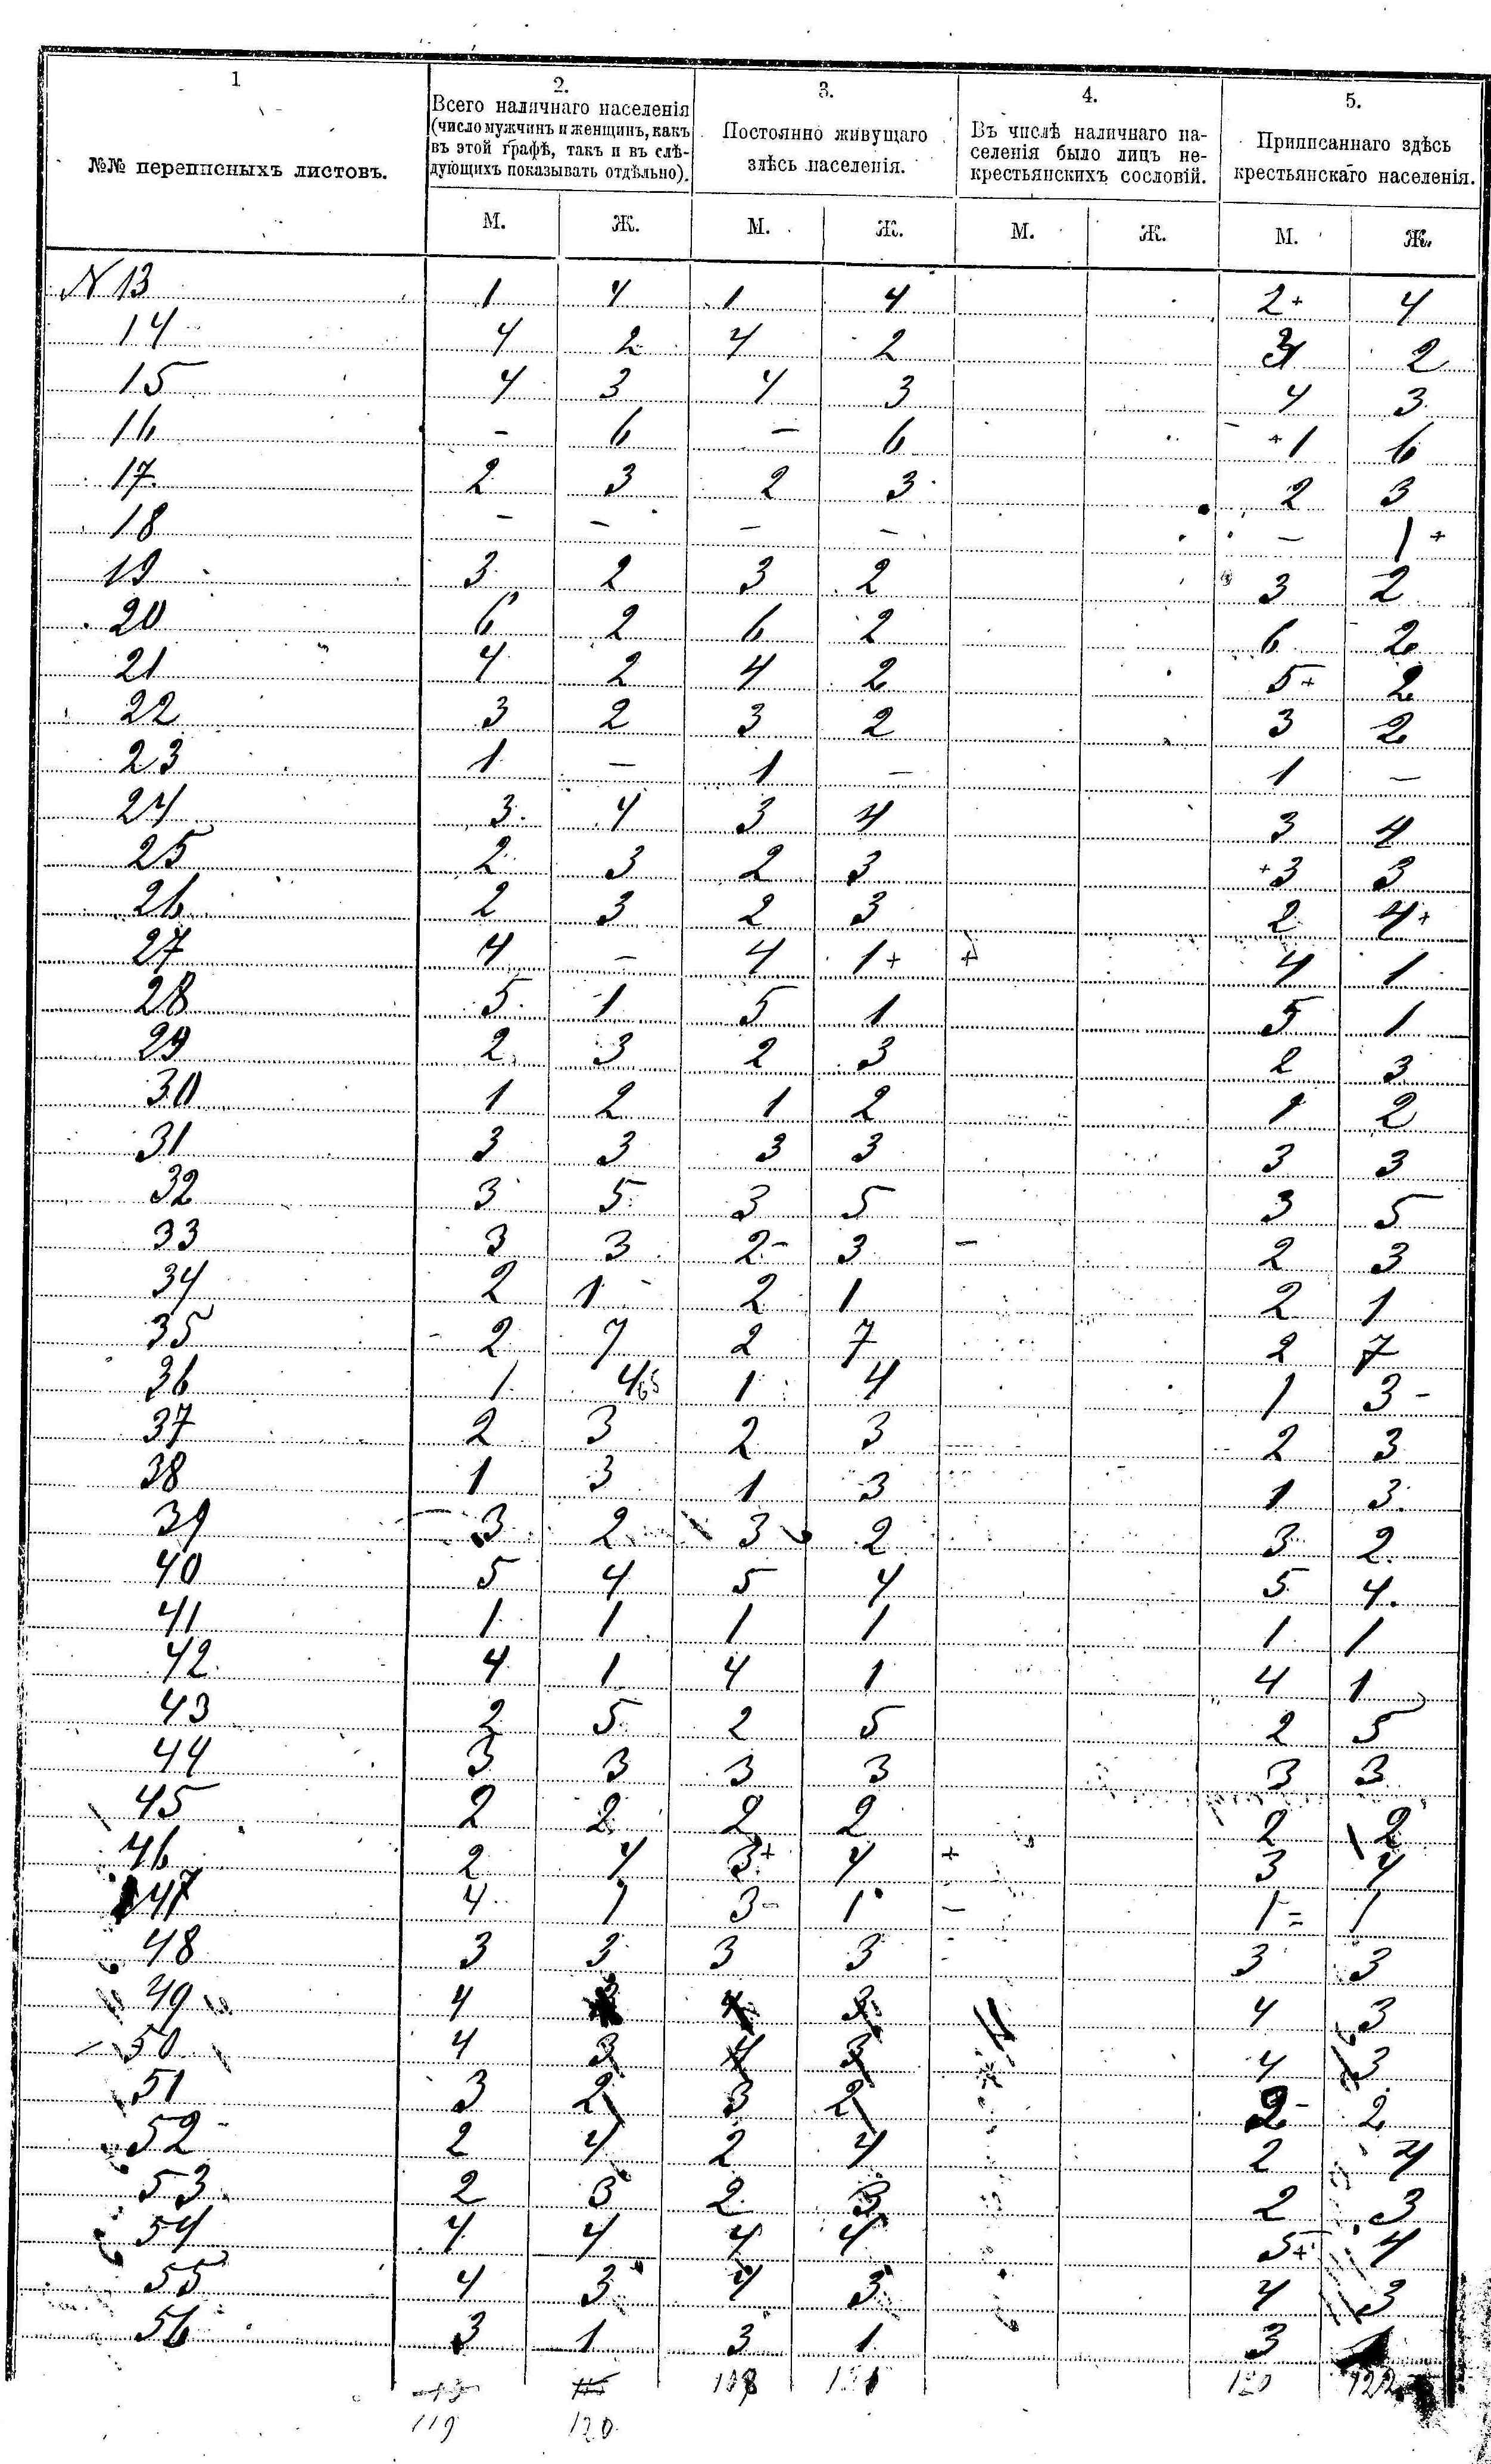 1 2. 3. 4. 5.
№№ переписныхъ листовъ. Всего наличнаго населенія (число мужчинъ и женщинъ, какъ въ этой графѣ, такъ и въ слѣдующихъ показывать отдѣльно). Постоянно живущаго здѣсь населенія. Въ числѣ наличнаго населенія было лицъ некрестьянскихъ сословій. Приписаннаго здѣсь крестьянскаго населенія.
М. Ж. М. Ж. М. Ж. М. Ж.
N 13 1 4 1 4 2+ 4
14 4 2 4 2 2
15 4 3 4 3 4 3
16 - 6 - 6 +1 6
17 2 3 2 3 2 3
18 - - - - - 1+
19 3 2 3 2 3 2
20 6 2 6 2 6 2
21 4 2 4 2 5+ 2
22 3 2 3 2 3 2
23 1 - 1 - 1 -
24 3 4 3 4 3 4
25 2 3 2 3 +3 3
26 2 3 2 3 2 4+
27 4 - 4 1+ + 4 1
28 5 1 5 1 5 1
29 2 3 2 3 2 3
30 1 2 1 2 1 2
31 3 3 3 3 3 3
32 3 5 3 5 3 5
33 3 3 2- 3 - 2 3
34 2 1 2 1 2 1
35 2 7 2 7 2 7
36 1 4 1 4 1 3-
37 2 3 2 3 2 3
38 1 3 1 3 1 3
39 3 2 3 2 3 2
40 5 4 5 4 5 4
41 1 1 1 1 1 1
42 4 1 4 1 4 1
43 2 5 2 5 2 5
44 3 3 3 3 3 3
45 2 2 2 2 2 2
46 2 4 3+ 4 + 3 4
47 4 1 3- 1 - 1= 1
48 3 3 3 3 3 3
49 4 3 4 3 4 3
50 4 3 4 3 4 3
51 3 2 3 2 2- 2
52 2 4 2 4 2 4
53 2 3 2 3 2 3
54 4 4 4 4 5+ 4
55 4 3 4 3 4 3
56 3 1 3 1 3
120 122
119 120